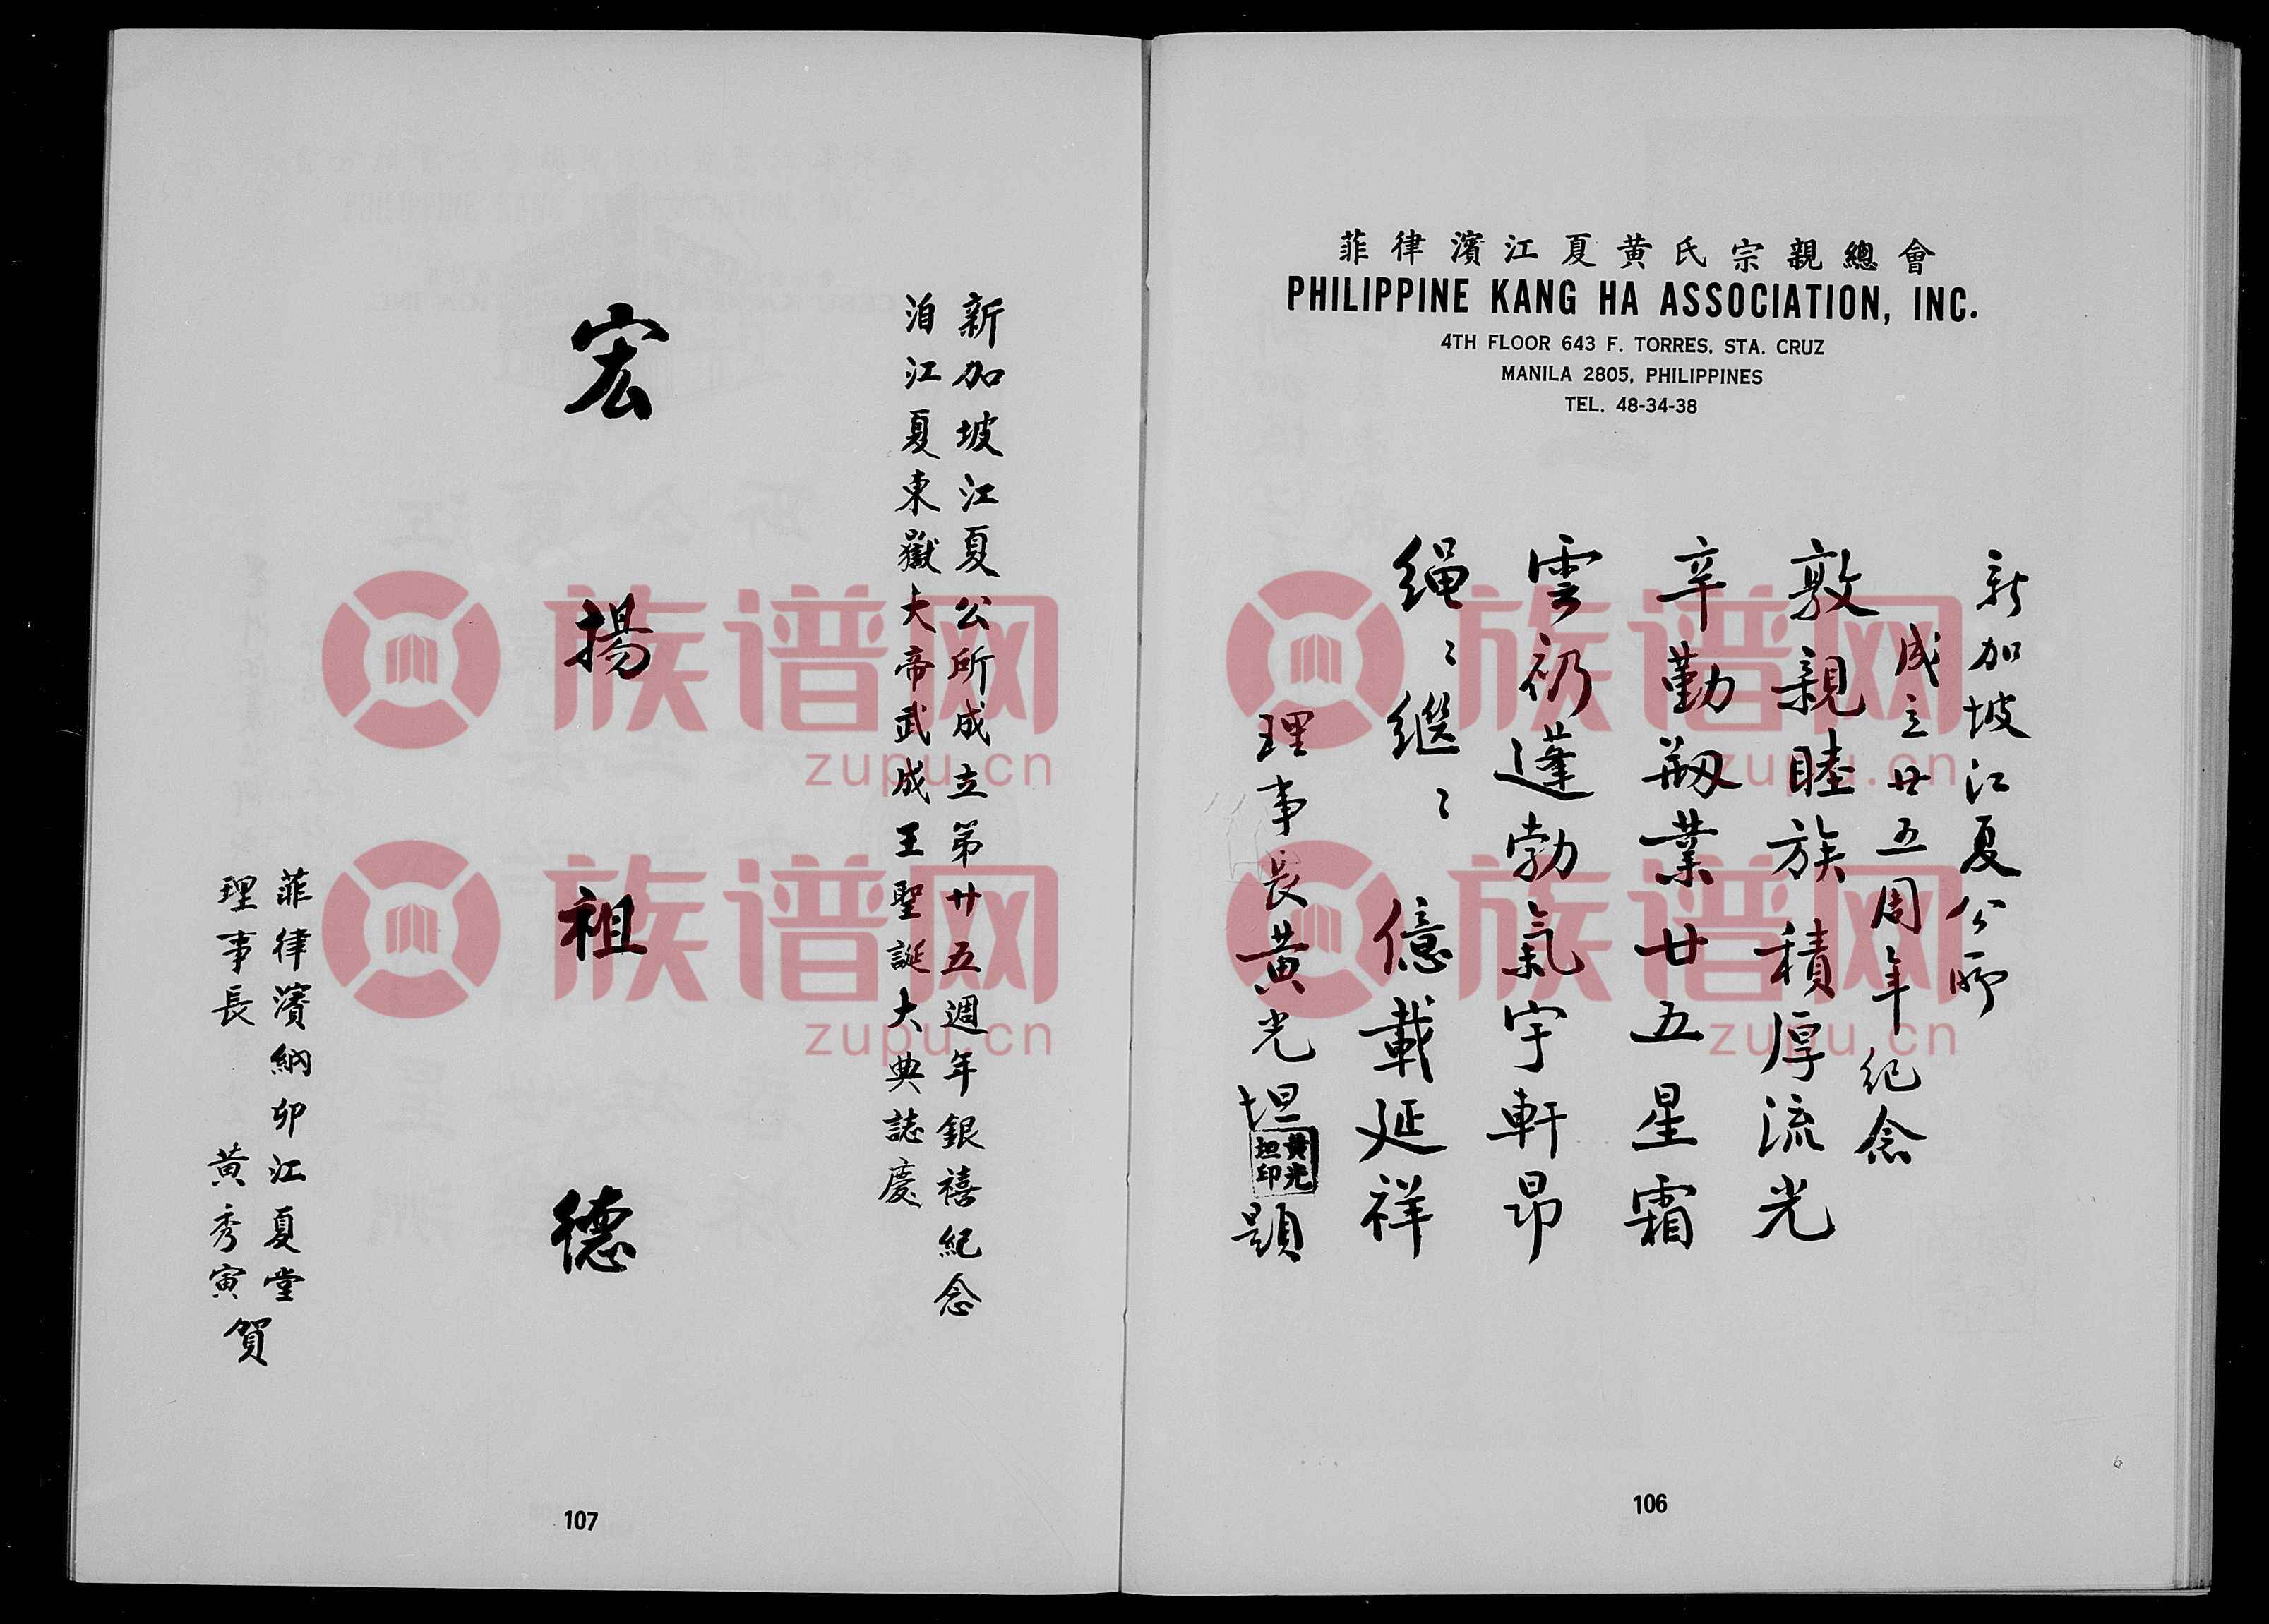 菲律濱江夏黃氏宗親總會
PHILIPPINE KANG HA ASSOCIATION, INC.
4TH FLOOR 643 F. TORRES, STA. CRUZ
MANILA 2805, PHILIPPINES
TEL. 48-34-38
新加坡江夏公所
成立廿五周年紀念
敦親睦族積厚流光
辛勤剏業廿五星霜
雲礽蓬勃氣宇軒昂
繩〻繼〻億載延祥
理事長黃光坦
黃光坦印
題
106
新加坡江夏公所成立第廿五週年銀禧紀念
洎江夏東嶽大帝武成王聖誕大典誌慶
宏揚祖德
菲律濱納卯江夏堂
理事長 黃秀寅
賀
107
族谱网
zupu.cn
族谱网
zupu.cn
族谱网
zupu.cn
族谱网
zupu.cn